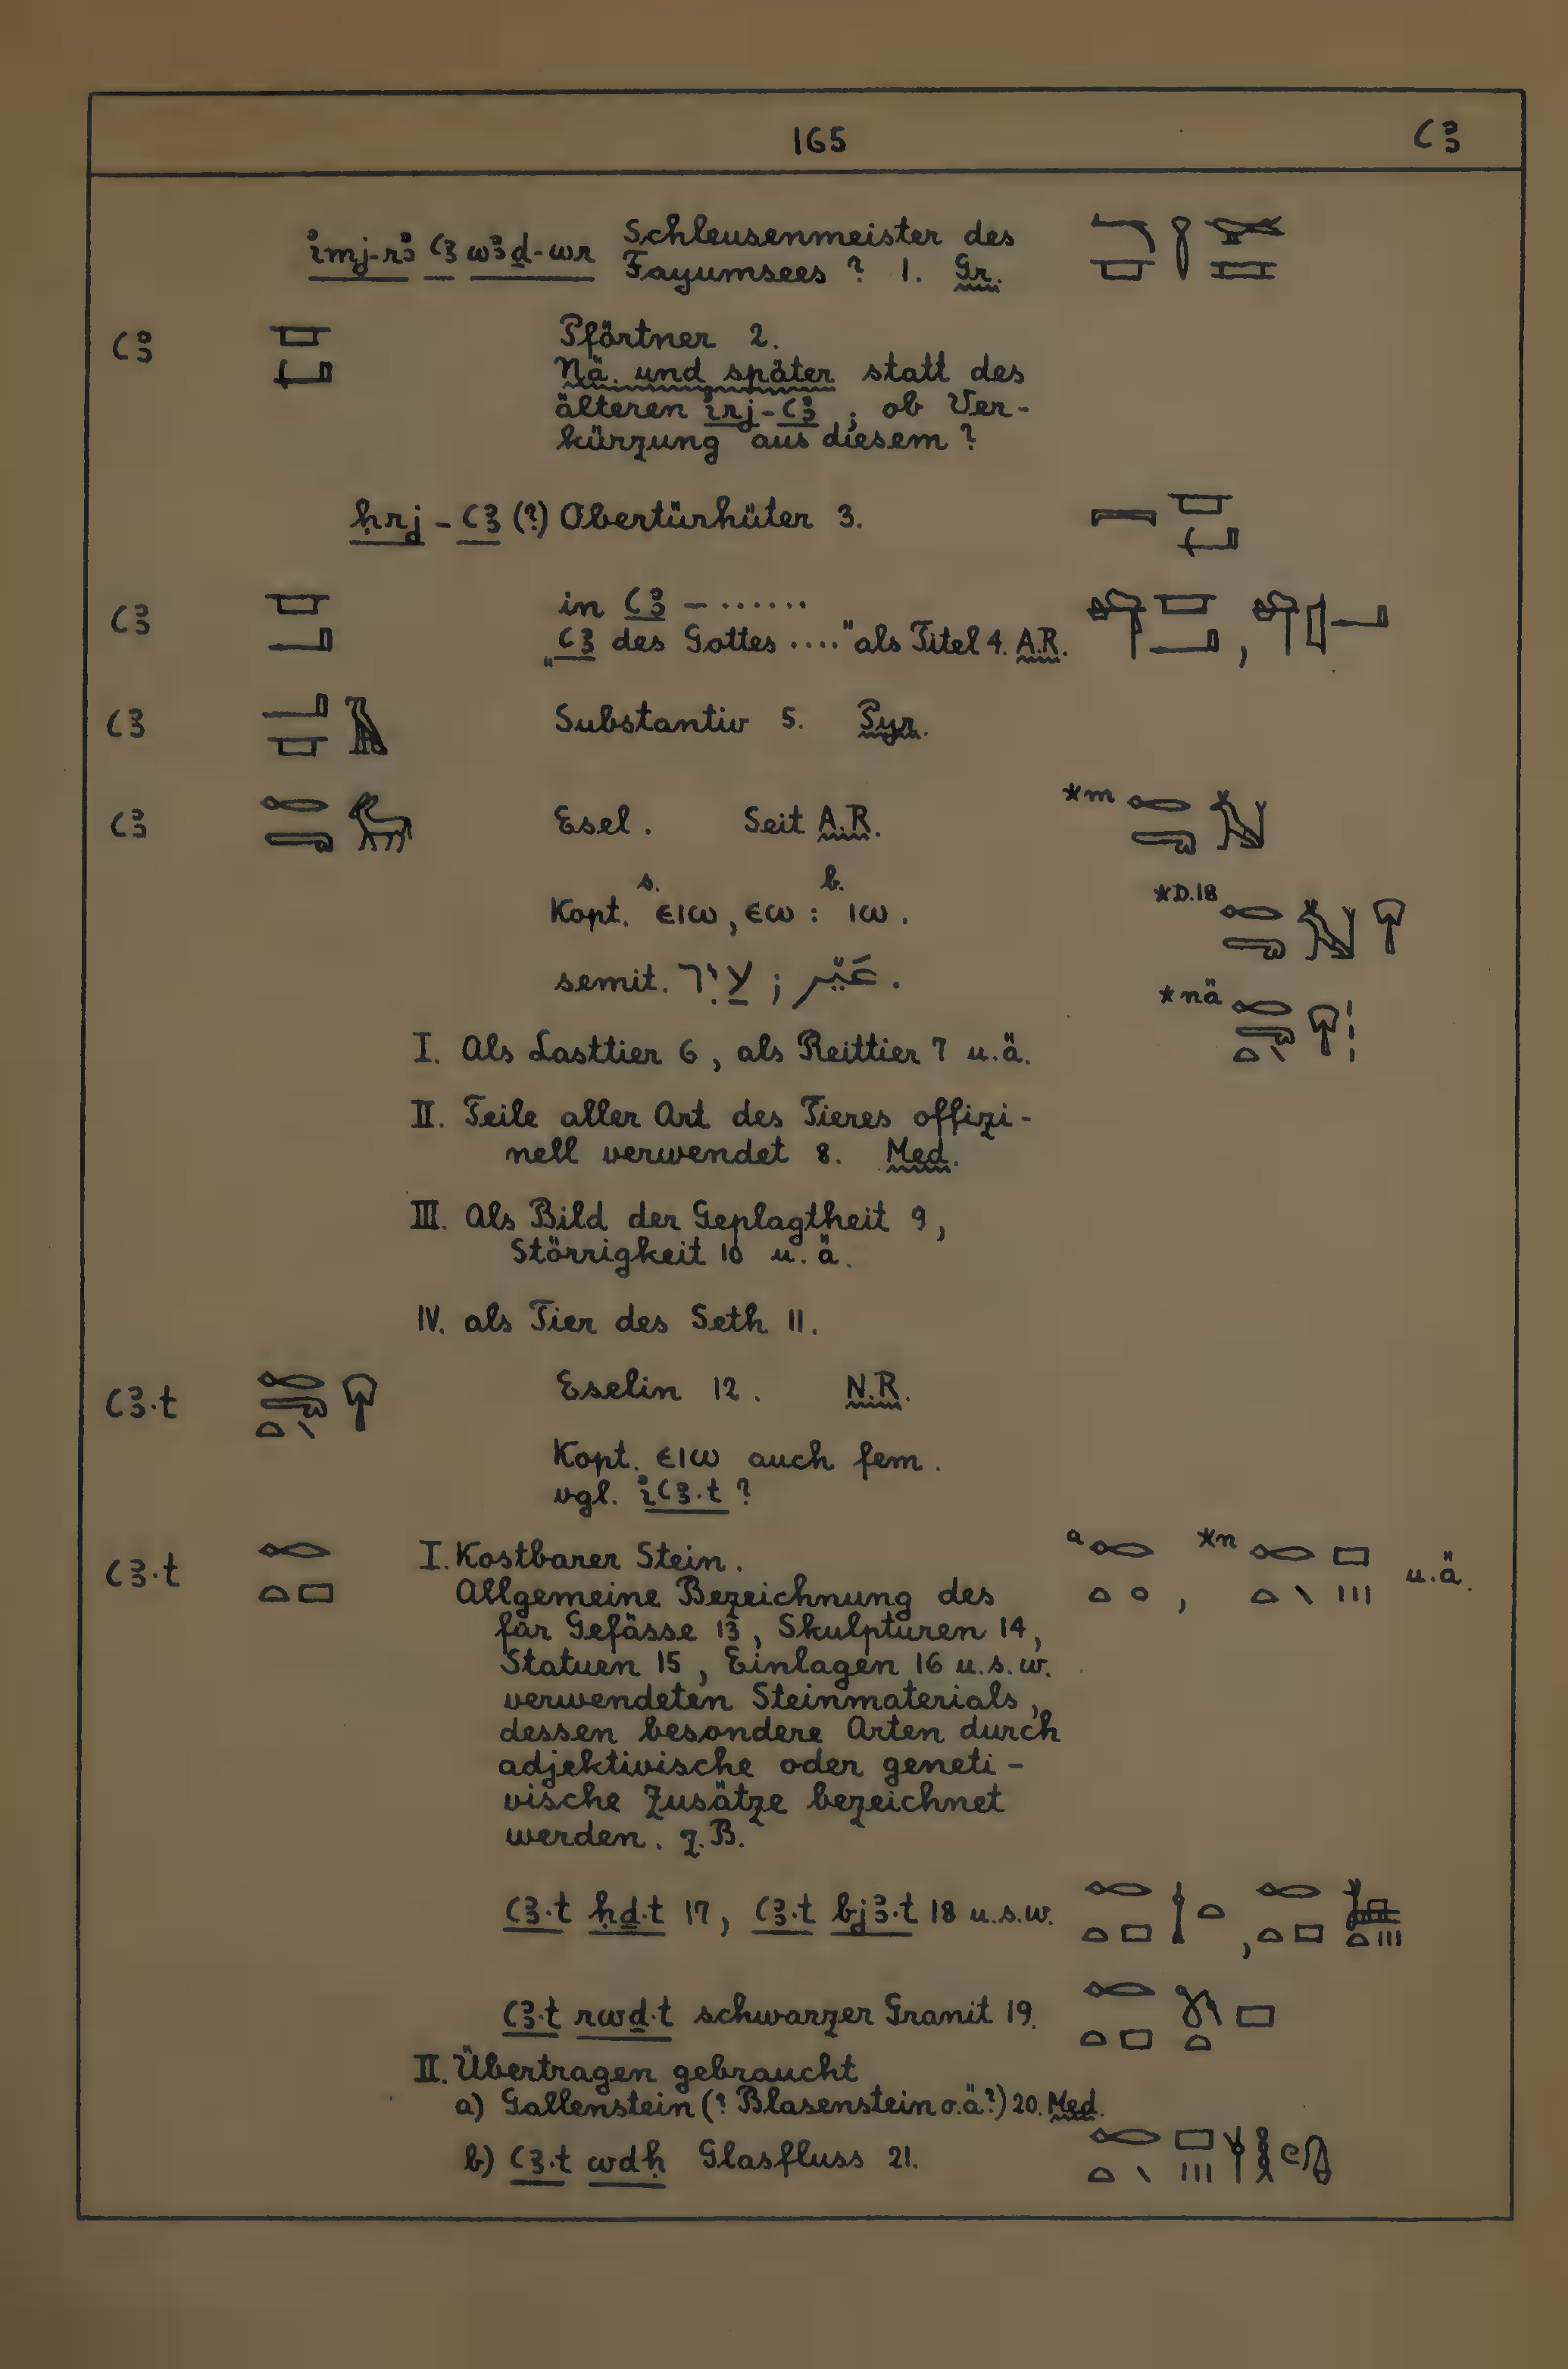 165 ꜥꜣ
i͗mj-rꜣ ꜥꜣ wꜣḏ-wr Schleusenmeister des
Fayumsees ? 1. Gr.
ꜥꜣ Pförtner 2.
Nä. und später statt des
älteren i͗rj-ꜥꜣ ; ob Ver-
kürzung aus diesem ?
ḥrj - ꜥꜣ (?) Obertürhüter 3.
ꜥꜣ in ꜥꜣ - ......
„ꜥꜣ des Gottes ...." als Titel 4. A.R.
ꜥꜣ Substantiv 5. Pyr.
ꜥꜣ Esel. Seit A.R. *m
s. b. *D.18
Kopt. ⲉⲓⲱ, ⲉⲱ : ⲓⲱ.
semit. עַיִר ; عَيْر. *nä
I. Als Lasttier 6, als Reittier 7 u.ä.
II. Teile aller Art des Tieres offizi-
nell verwendet 8. Med.
III. Als Bild der Geplagtheit 9,
Störrigkeit 10 u.ä.
IV. als Tier des Seth 11.
ꜥꜣ.t Eselin 12. N.R.
Kopt. ⲉⲓⲱ auch fem.
vgl. i͗ꜥꜣ.t ?
ꜥꜣ.t I. Kostbarer Stein. a , *n u.ä.
Allgemeine Bezeichnung des
für Gefässe 13, Skulpturen 14,
Statuen 15, Einlagen 16 u.s.w.
verwendeten Steinmaterials,
dessen besondere Arten durch
adjektivische oder geneti-
vische Zusätze bezeichnet
werden. z.B.
ꜥꜣ.t ḥḏ.t 17, ꜥꜣ.t bjꜣ.t 18 u.s.w.
ꜥꜣ.t rwḏ.t schwarzer Granit 19.
II. Übertragen gebraucht
a) Gallenstein (? Blasenstein o.ä?) 20. Med.
b) ꜥꜣ.t wdḥ Glasfluss 21.